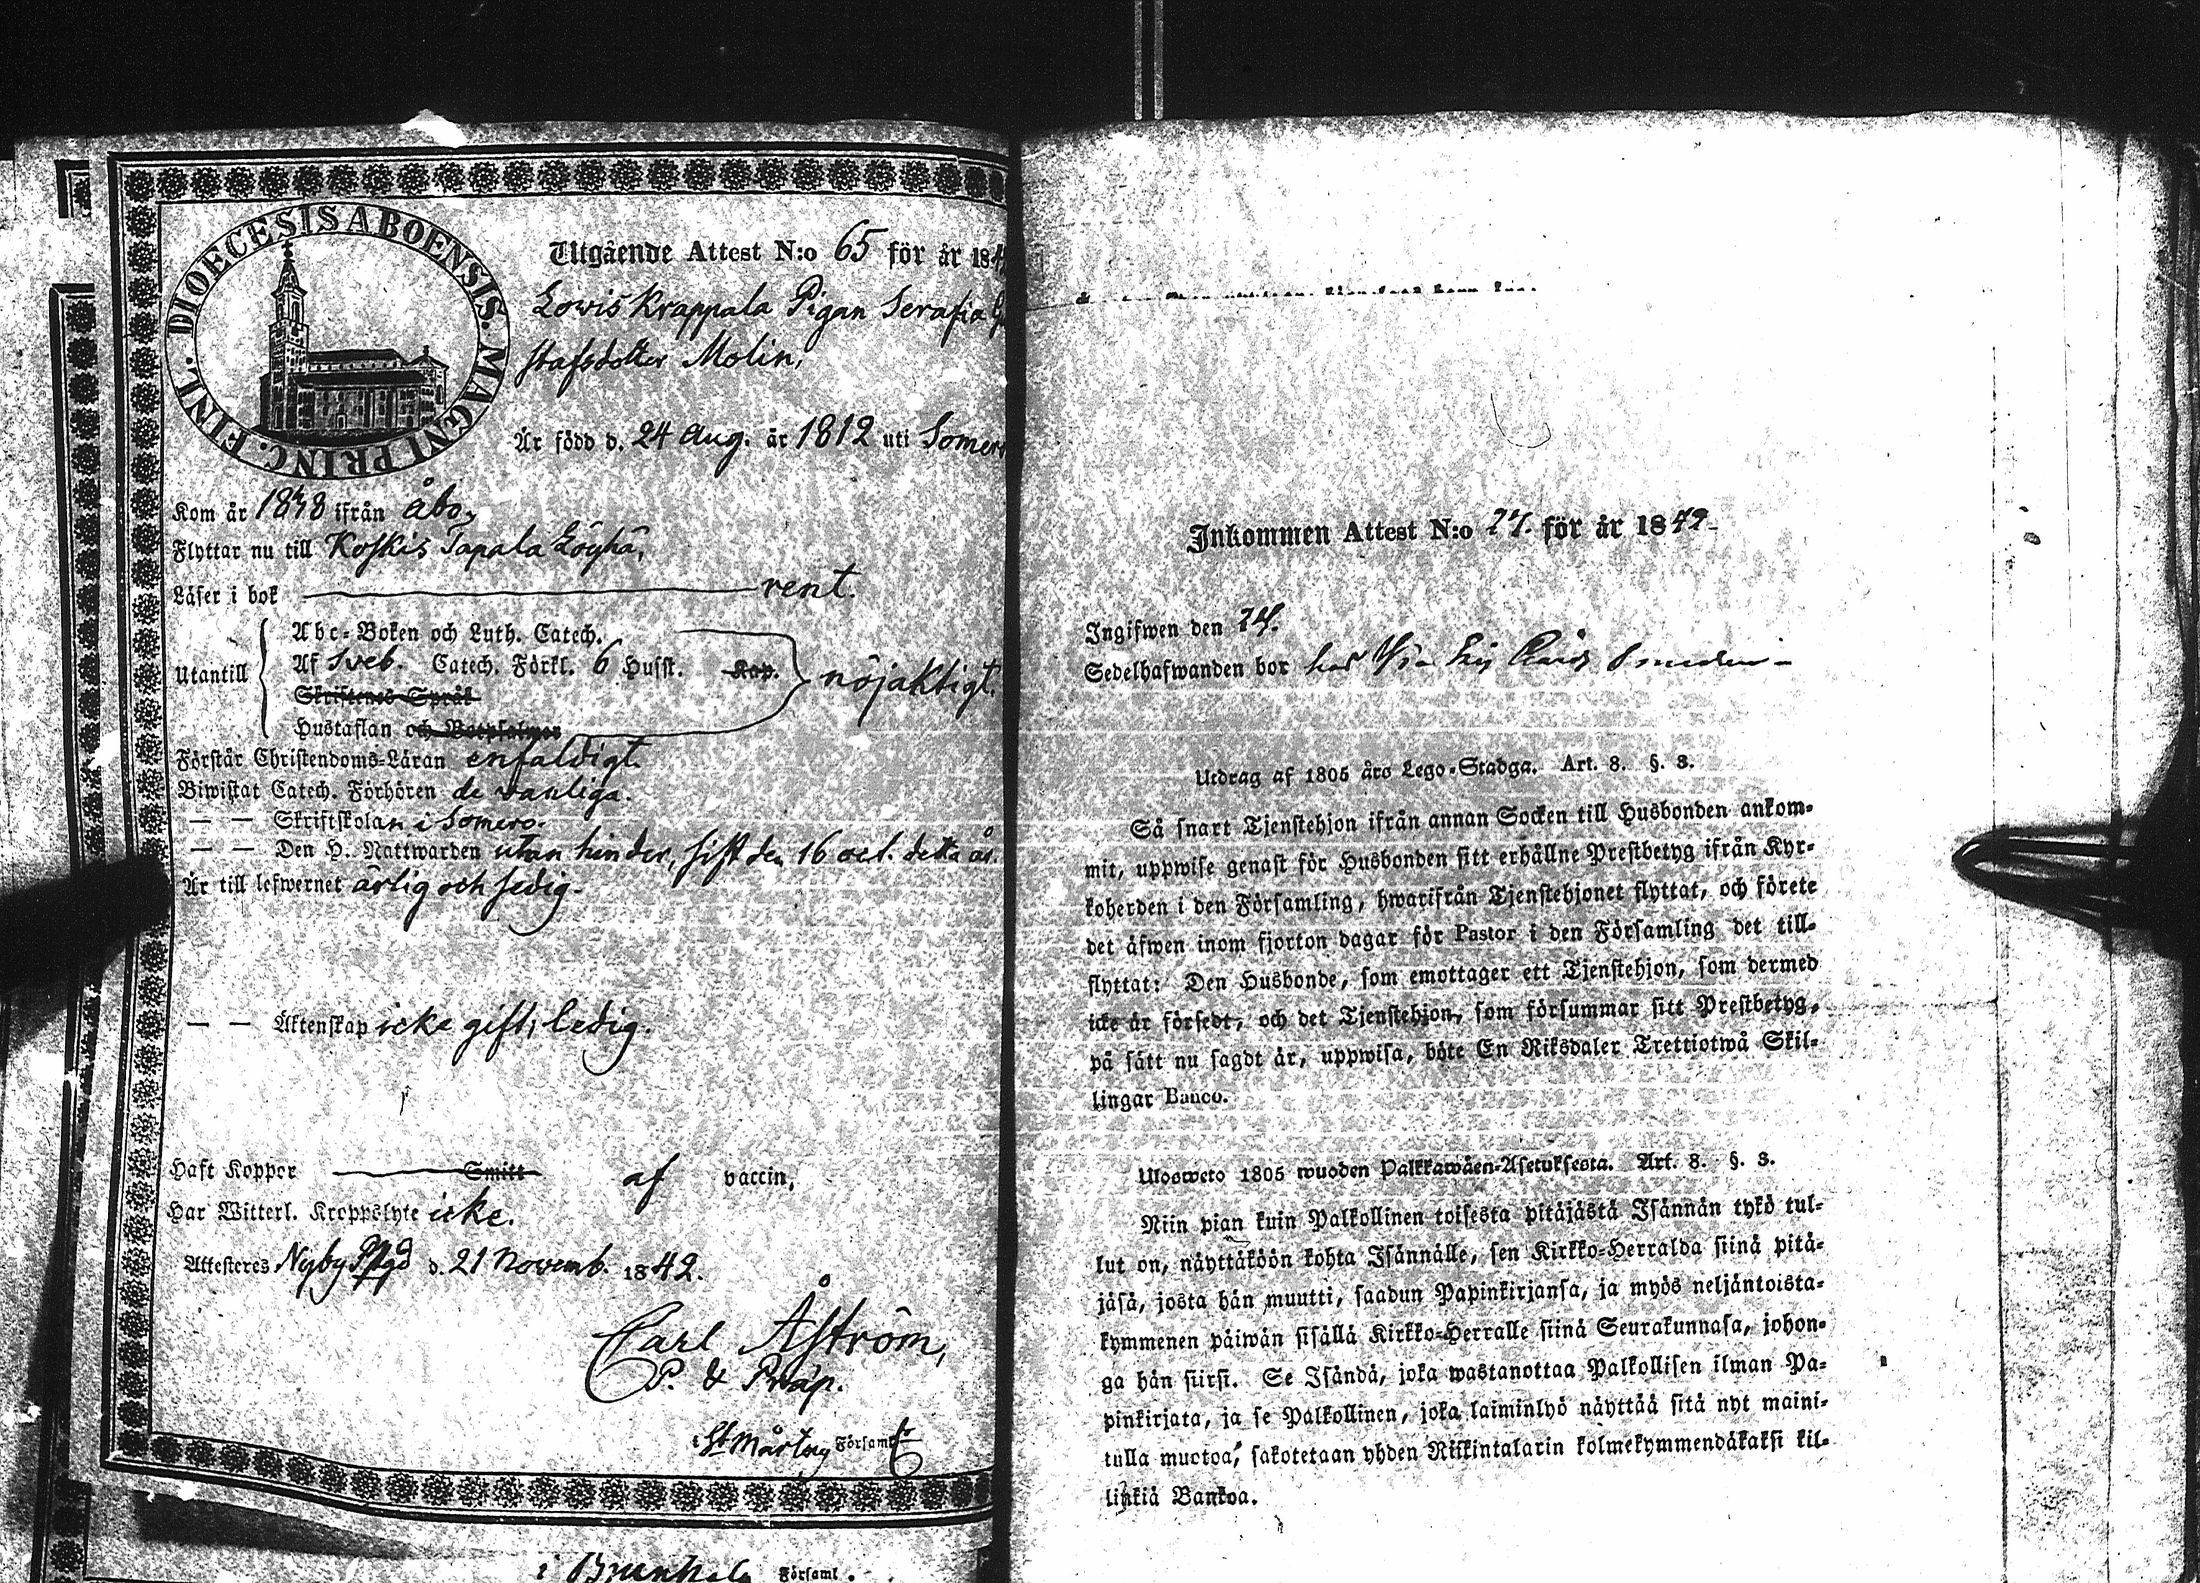 DIOECESIS ABOENSIS. MAGNI PRINC. FINL.
Utgående Attest N:o 65 för år 184
Lowis Krappala Pigan Serafia G
stafsdotter Molin,
Är född d. 24 Aug. år 1812 uti Somero
Kom år 1838 ifrån Åbo,
Flyttar nu till Koskis Tapala Löyhä,
Läser i bok rent.
Utantill
Abc-Boken och Luth. Catech.
Af Sveb. Catech. Förkl. 6 Husst. Kap. nöjaktigt.
Skriftenes Språk
Hustaflan och Botpsalmer
Förstår Christendoms-Läran enfaldigt.
Biwistat Catech. Förhören de vanliga.
— — Skriftskolan i Somero.
— — Den H. Nattwarden utan hinder, sist den 16 oct. detta år.
Är till lefwernet ärlig och sedig.
— — Äktenskap icke gift, ledig.
Haft Koppor Smitt af vaccin,
Har Witterl. Kroppslyte icke.
Attesteres Nyby Pstgd d. 21 Novemb. 1842.
Carl Åström,
P. & Præp.
i St Mårtens Församl.
i Församl.
Inkommen Attest N:o 27. för år 1842
Ingifwen den 24.
Sedelhafwanden bor hos
Utdrag af 1805 års Lego-Stadga. Art. 8. §. 3.
Så snart Tjenstehjon ifrån annan Socken till Husbonden ankom-
mit, uppwise genast för Husbonden sitt erhållne Prestbetyg ifrån Kyr-
koherden i den Församling, hwarifrån Tjenstehjonet flyttat, och förete
det äfwen inom fjorton dagar för Pastor i den Församling det till-
flyttat: Den Husbonde, som emottager ett Tjenstehjon, som dermed
icke är försedt, och det Tjenstehjon, som försummar sitt Prestbetyg,
på sätt nu sagdt är, uppwisa, böte En Riksdaler Trettiotwå Skil-
lingar Banco.
Ulosweto 1805 wuoden Palkkawäen-Asetuksesta. Art. 8. §. 3.
Niin pian kuin Palkollinen toisesta pitäjästä Isännän tykö tul-
lut on, näyttäköön kohta Isännälle, sen Kirkko-Herralda siinä pitä-
jäsä, josta hän muutti, saadun Papinkirjansa, ja myös neljäntoista-
kymmenen päiwän sisällä Kirkko-Herralle siinä Seurakunnasa, johon-
ga hän siirsi. Se Isändä, joka wastanottaa Palkollisen ilman Pa-
pinkirjata, ja se Palkollinen, joka laiminlyö näyttää sitä nyt maini-
tulla muotoa, sakotetaan yhden Riikintalarin kolmekymmendäkaksi kil-
linkiä Bankoa.